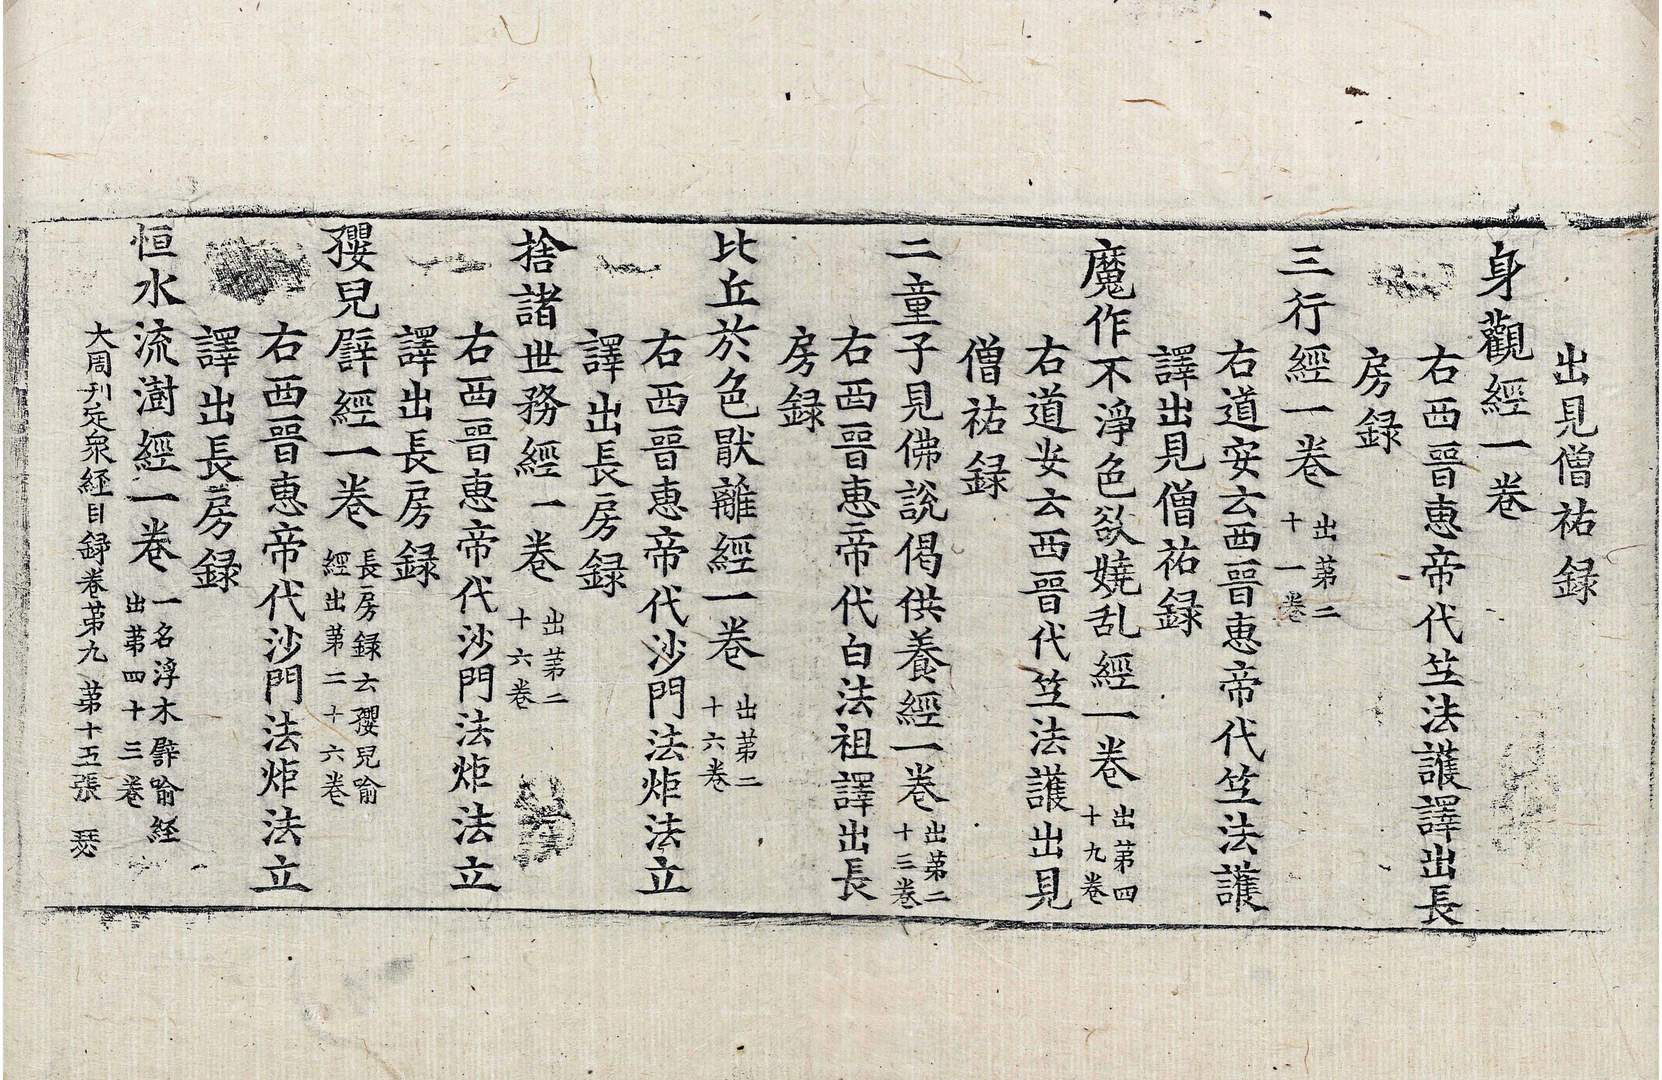 出見僧祐録
身觀經一卷
右西晉惠帝代竺法護譯出長
房録
三行經一卷 出第二十一卷
右道安云西晉惠帝代竺法護
譯出見僧祐録
魔作不淨色欲嬈乱經一卷 出第四十九卷
右道安云西晉代竺法護出見
僧祐録
二童子見佛說偈供養經一卷 出第二十三卷
右西晉惠帝代白法祖譯出長
房録
比丘於色猒離經一卷 出第二十六卷
右西晉惠帝代沙門法炬法立
譯出長房録
捨諸世務經一卷 出第二十六卷
右西晉惠帝代沙門法炬法立
譯出長房録
㜸兒譬經一卷 長房録云㜸兒喻經出第二十六卷
右西晉惠帝代沙門法炬法立
譯出長房録
恒水流澍經一卷 一名浮木譬喻經出第四十三卷
大周刊定衆經目録卷第九 第十五張 瑟